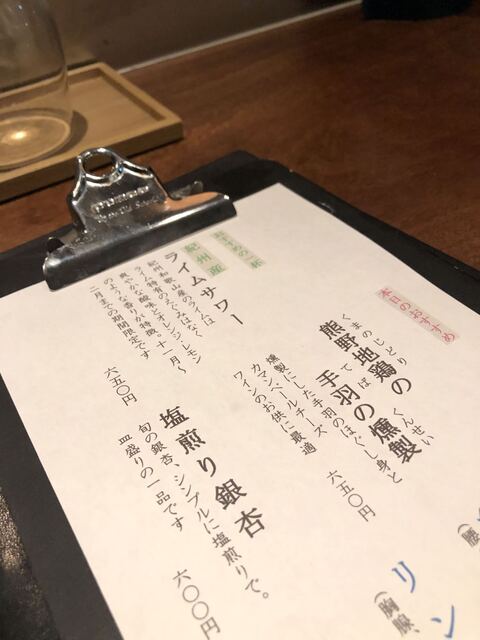 本日のおすすめ
くまのじどり
熊野地鶏の
てば くんせい
手羽の燻製
燻製にした手羽のほぐし身と
カマンベールチーズ
ワインのお供に最適
六五〇円
紀州産
ライムサワー
紀州和歌山産のライムは
ライム特有のえぐみはなく
爽やかな酸味とオレンジ・レモン
のような香りが特徴。十一月～
二月までの期間限定です
六五〇円
塩煎り銀杏
旬の銀杏、シンプルに塩煎りで。
皿盛りの一品です
六〇〇円
リン
(胸腺
(腰